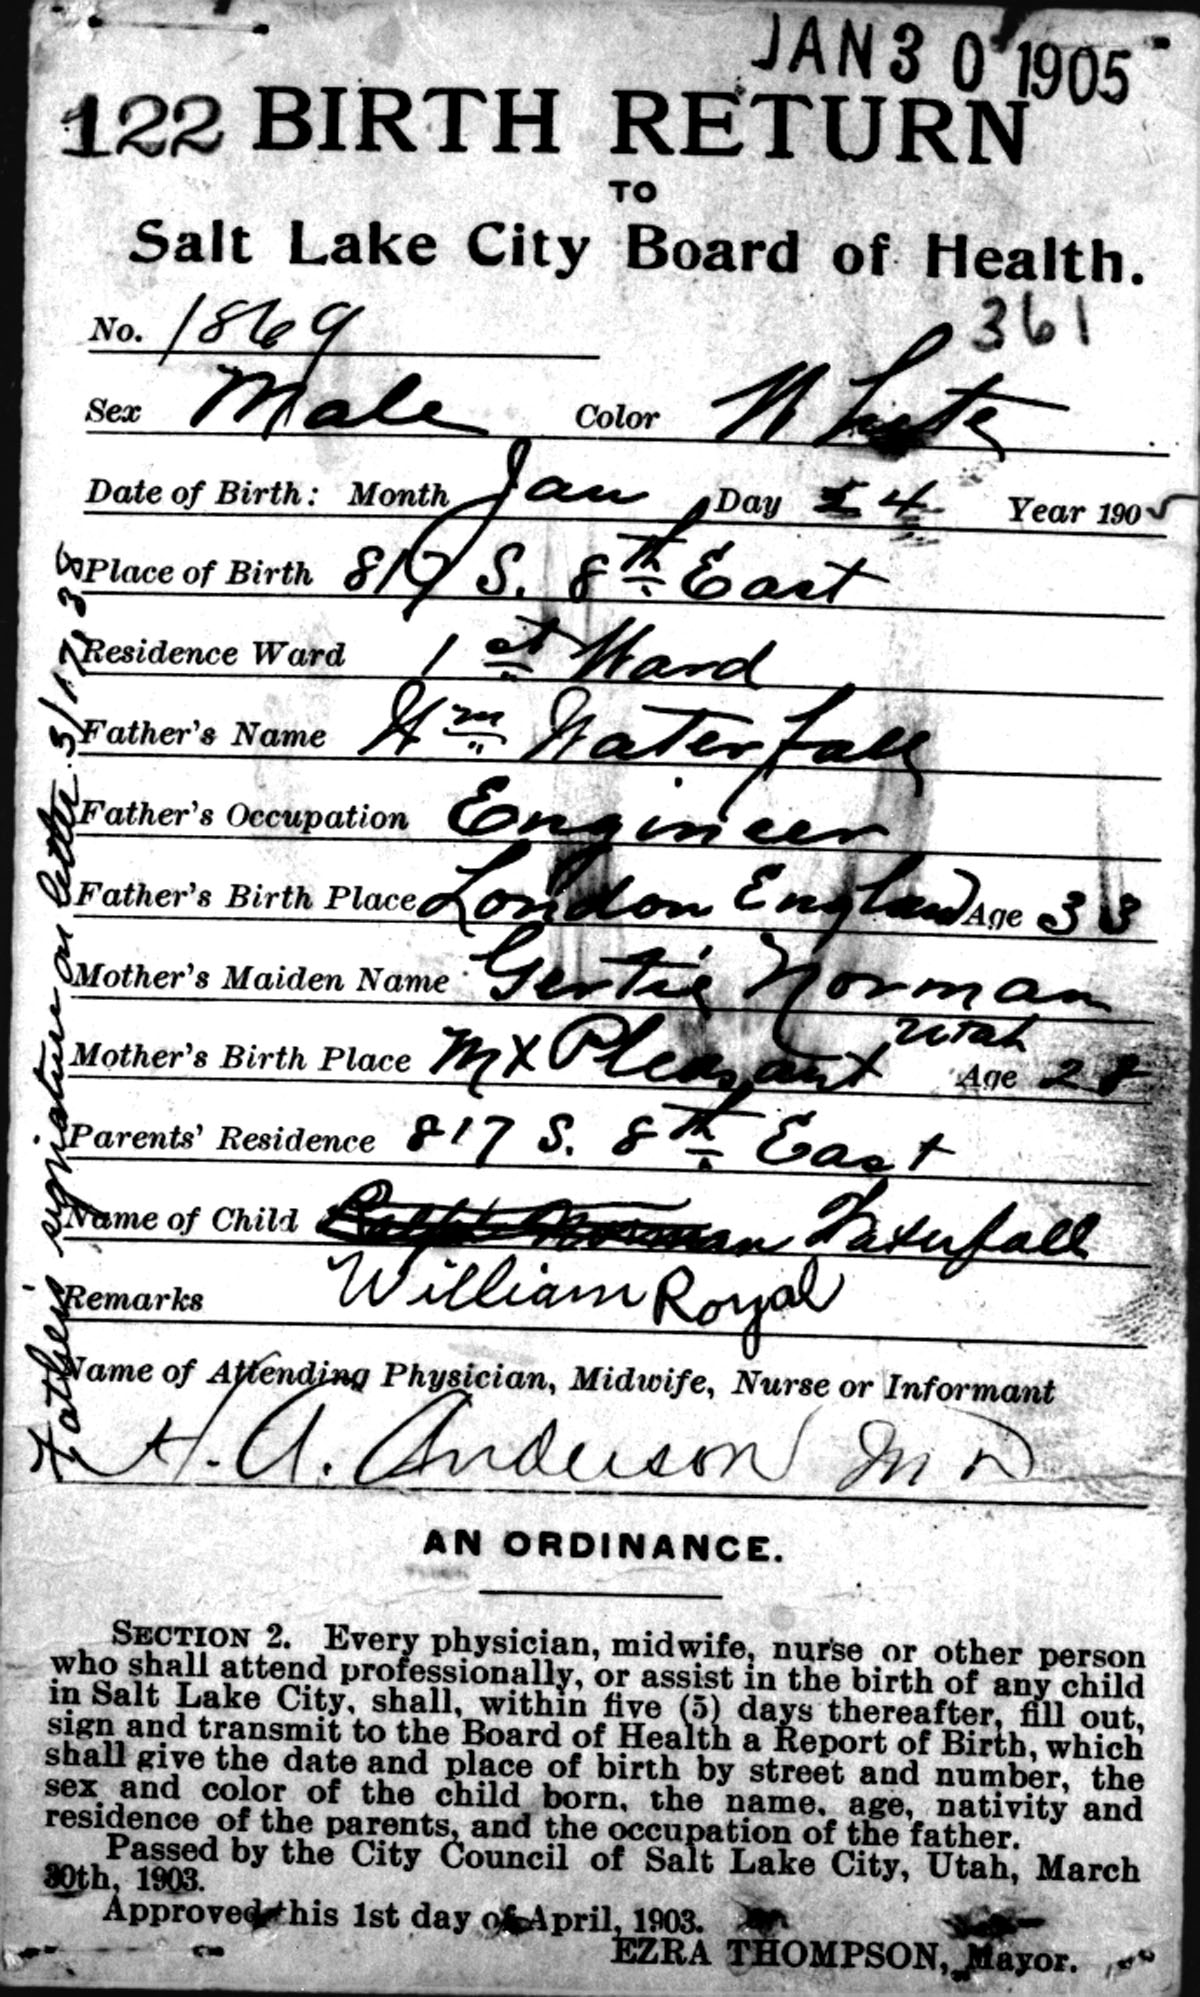 JAN 30 1905
122 BIRTH RETURN
TO
Salt Lake City Board of Health.
361
No. 1869
Sex Male Color White
Date of Birth: Month Jan Day 24 Year 1905
Place of Birth 817 S. 8th East
Residence Ward 1st Ward
Father's Name Wm Waterfall
Father's Occupation Engineer
Father's Birth Place London England Age 33
Mother's Maiden Name Gertie Norman
Mother's Birth Place Mt Pleasant Utah Age 28
Parents' Residence 817 S. 8th East
Name of Child Ralph Norman Waterfall
William Royal
Remarks
Name of Attending Physician, Midwife, Nurse or Informant
H. A. Anderson M D
Father's signature on letter 3/17/38
AN ORDINANCE.
SECTION 2. Every physician, midwife, nurse or other person
who shall attend professionally, or assist in the birth of any child
in Salt Lake City, shall, within five (5) days thereafter, fill out,
sign and transmit to the Board of Health a Report of Birth, which
shall give the date and place of birth by street and number, the
sex and color of the child born, the name, age, nativity and
residence of the parents, and the occupation of the father.
Passed by the City Council of Salt Lake City, Utah, March
30th, 1903.
Approved this 1st day of April, 1903.
EZRA THOMPSON, Mayor.